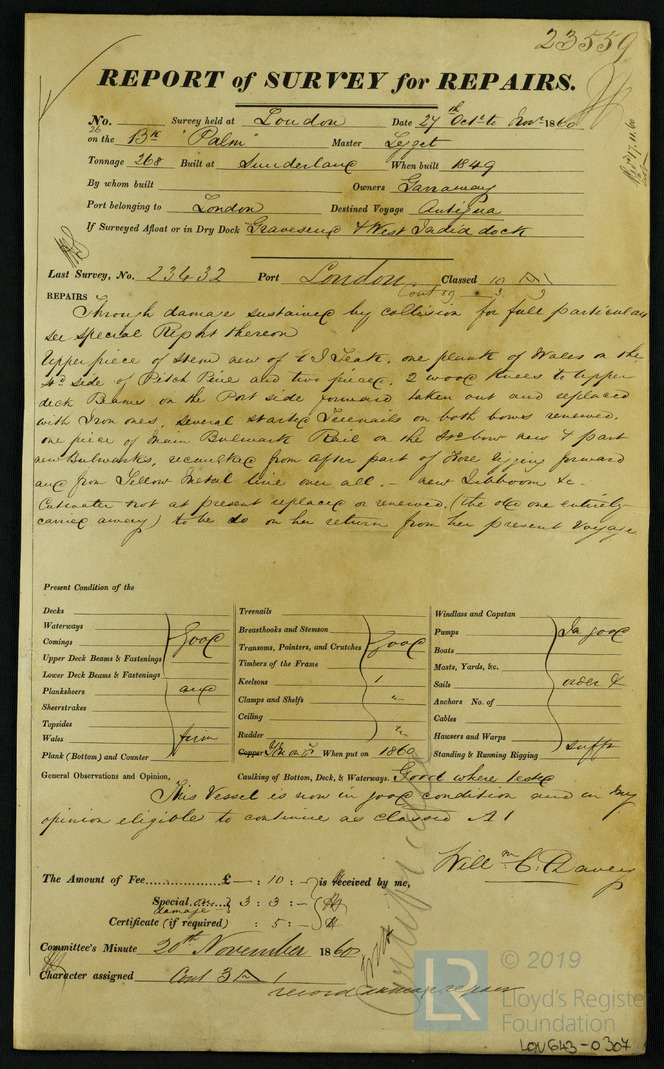 23559
REPORT of SURVEY for REPAIRS.
No. Survey held at London Date 27th Oct. to Nov. 1860
26
on the Bk "Palm" Master Legget
Tonnage 268 Built at Sunderland When built 1849
By whom built Owners Garraway
Port belonging to London Destined Voyage Antigua
If Surveyed Afloat or in Dry Dock Gravesend & West India dock
Last Survey, No. 23432 Port London Classed 10 A 1
Cont 59. 3
REPAIRS
Through damage sustained by collision for full particulars
see special Report thereon
Upper piece of Stem new of E I Teak, one plank of Wales on the
St'd side of Pitch Pine and two pieces, 2 wood knees to upper
deck Beams on the Port side forward taken out and replaced
with Iron ones, several started Treenails on both bows renewed,
one piece of Main Bulwark Rail on the St'd bow new & part
new Bulwarks, recaulked from after part of Fore rigging forward
and from Yellow Metal line over all. - new Jibboom &c.
Cutwater not at present replaced or renewed, (the old one entirely
carried away) to be do on her return from her present Voyage
Present Condition of the
Decks
Waterways
Comings
Upper Deck Beams & Fastenings
Lower Deck Beams & Fastenings
Planksheers
Sheerstrakes
Topsides
Wales
Plank (Bottom) and Counter
Good
and
firm
Treenails
Breasthooks and Stemson
Transoms, Pointers, and Crutches
Timbers of the Frame
Keelsons
Clamps and Shelfs
Ceiling
Rudder
Good
Copper When put on 1860
Windlass and Capstan
Pumps
Boats
Masts, Yards, &c.
Sails
Anchors No. of
Cables
Hawsers and Warps
Standing & Running Rigging
In good
order &
sufft
General Observations and Opinion, Caulking of Bottom, Deck, & Waterways. Good where tested
This Vessel is now in good condition and in my
opinion eligible to continue as classed A 1
Will'm C. Davey
The Amount of Fee £ - : 10 : - is received by me,
Special 3 : 3 : -
damage
Certificate (if required) : 5 : -
Committee's Minute 20th November 1860
Character assigned Cont 3 A 1
record damage repair
© 2019
LR
Lloyd's Register
Foundation
LQV643-0307